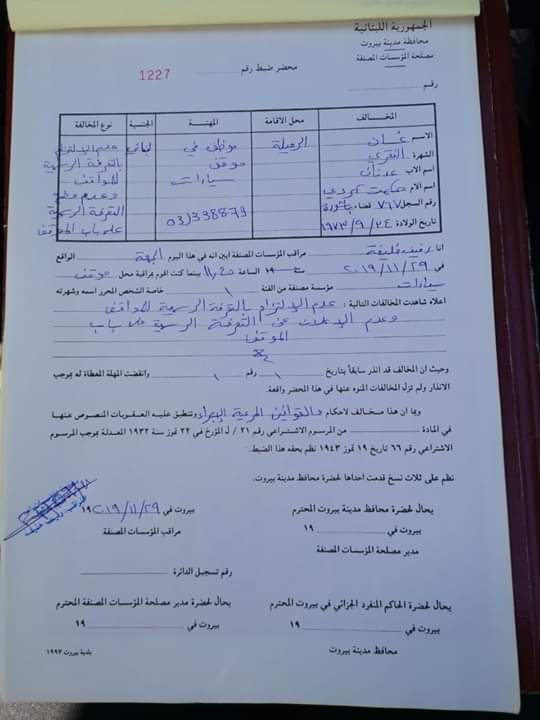 الجمهورية اللبنانية
محافظة مدينة بيروت
مصلحة المؤسسات المصنفة
محضر ضبط رقم 1227
رقم
المخالف محل الاقامة المهنة الجنسية نوع المخالفة
الاسم غسان الرميلة موظف في لبناني عدم الالتزام
الشهرة موقف بالتعرفة الرسمية
اسم الاب عدنان سيارات للمواقف
اسم الام حكمت كردي وعدم وضع
رقم السجل ٧٦٧ قضاء 03/338879 التعرفة الرسمية
تاريخ الولادة ١٩٧٣/٩/٢٤ على باب الموقف
انا خليفة مراقب المؤسسات المصنفة ابين انه في هذا اليوم الجمعة الواقع
في ٢٠١٩/١١/٢٩ سنة ١٩ الساعة بينما كنت اقوم بمراقبة محل موقف
سيارات مؤسسة مصنفة من الفئة ١ خاصة الشخص المحرر اسمه وشهرته
اعلاه شاهدت المخالفات التالية : عدم الالتزام بالتعرفة الرسمية للمواقف
وعدم الاعلان عن التعرفة الرسمية على باب
الموقف
وحيث ان المخالف قد انذر سابقاً بتاريخ ١ رقم ١ وانقضت المهلة المعطاة له بموجب
الانذار ولم تزل المخالفات المنوه عنها في هذا المحضر واقعة.
وبما ان هذا مخالف لاحكام والقوانين المرعية الاجراء وتنطبق عليه العقوبات المنصوص عنها
في المادة من المرسوم الاشتراعي رقم ٢١ / ل المؤرخ في ٢٢ تموز سنة ١٩٣٢ المعدلة بموجب المرسوم
الاشتراعي رقم ٦٦ تاريخ ١٩ تموز ١٩٤٣ نظم بحقه هذا الضبط.
نظم على ثلاث نسخ قدمت احداها لحضرة محافظ مدينة بيروت.
يحال لحضرة محافظ مدينة بيروت المحترم بيروت في ٢٠١٩/١١/٢٩ ١٩
بيروت في ١٩ مراقب المؤسسات المصنفة
مدير مصلحة المؤسسات المصنفة
رقم تسجيل الدائرة
يحال لحضرة الحاكم المنفرد الجزائي في بيروت المحترم يحال لحضرة مدير مصلحة المؤسسات المصنفة المحترم
بيروت في ١٩ بيروت في ١٩
محافظ مدينة بيروت
بلدية بيروت ١٩٩٧